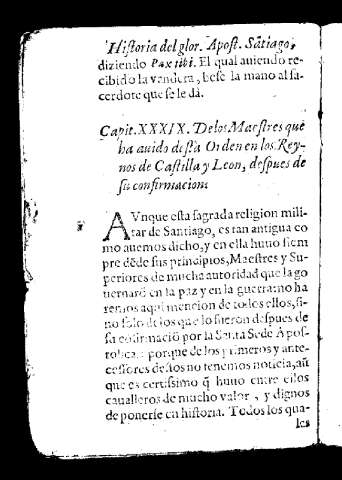 Historia del glor. Apost. Sãtiago,
diziendo Pax tibi. El qual auiendo re-
cibido la vandera, bese la mano al sa-
cerdote que se le dà.
Capit. XXXIX. De los Maestres que
ha auido desta Orden en los Rey-
nos de Castilla y Leon, despues de
su confirmacion.
AVnque esta sagrada religion mili-
tar de Santiago, es tan antigua co
mo auemos dicho, y en ella huuo siem
pre dẽde sus principios, Maestres y Su-
periores de mucha autoridad que la go
uernarõ en la paz y en la guerra: no ha
remos aqui mencion de todos ellos, si-
no solo de los que lo fueron despues de
su cõfirmació por la Santa Sede Apos-
tolica: porque de los primeros y ante-
cessores destos no tenemos noticia, aũ
que es certissimo q̃ huuo entre ellos
caualleros de mucho valor, y dignos
de ponerse en historia. Todos los qua-
les